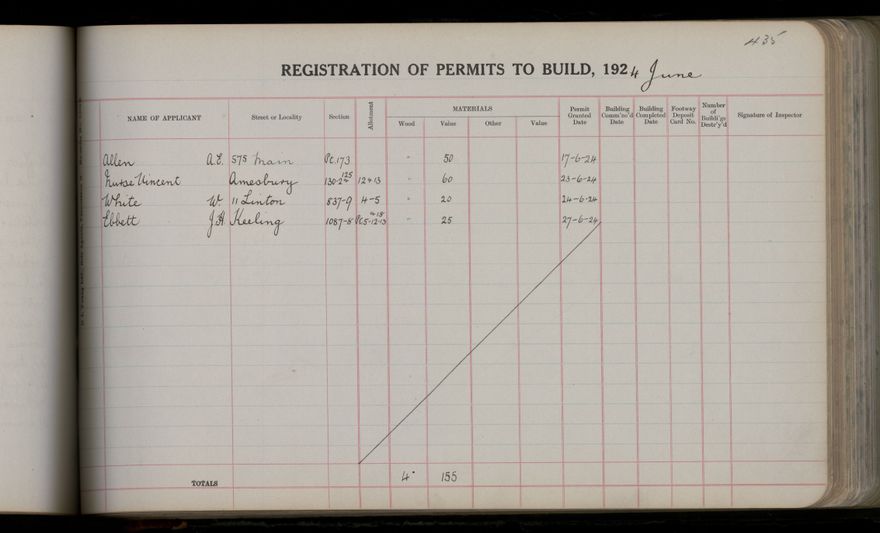 435
REGISTRATION OF PERMITS TO BUILD, 1924 June
NAME OF APPLICANT Street or Locality Section Allotment MATERIALS Wood Value Other Value Permit Granted Date Building Comm'nc'd Date Building Completed Date Footway Deposit Card No. Number of Buildi'gs Destr'y'd Signature of Inspector
Allen A.E. 575 Main Pt. 173 " 50 17-6-24
Nurse Vincent Amesbury 125 12+13 " 60 23-6-24
White W 11 Linton 837-9 4-5 " 20 24-6-24
Ebbett J.H Keeling 1087-8 " 25 27-6-24
TOTALS 4 155